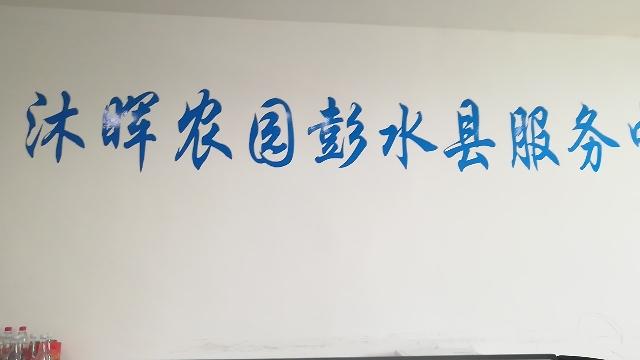 沐晖农园彭水县服务中